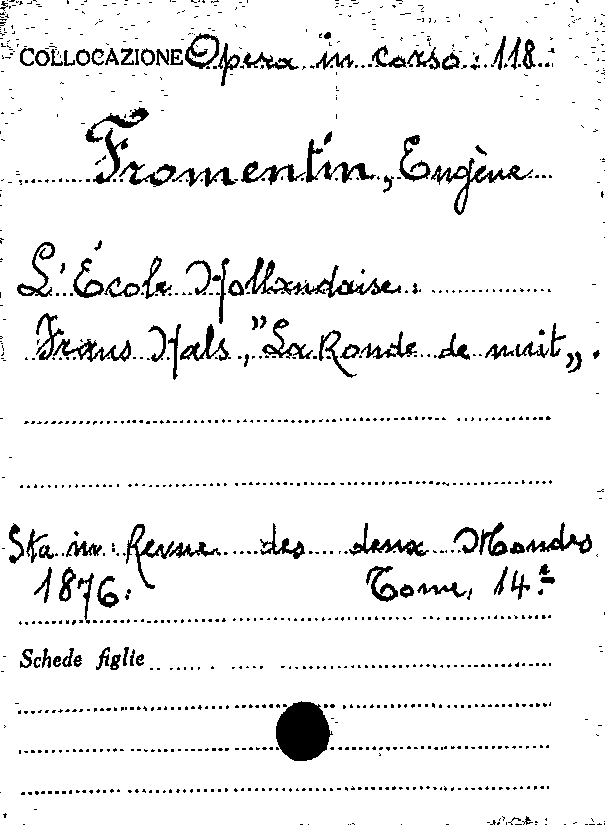 COLLOCAZIONE Opera in corso: 118.
Fromentin, Eugène
L'École Hollandaise.
Frans Hals, "La Ronde de nuit„.
Sta in: Revue des deux Mondes
1876. Tome, 14.e
Schede figlie